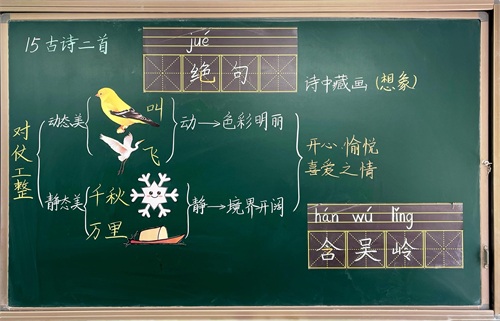 15 古诗二首
jué
绝句
诗中藏画（想象）
对仗工整
动态美
叫
飞
动→色彩明丽
静态美
千秋
万里
静→境界开阔
开心、愉悦
喜爱之情
hán wú lǐng
含吴岭